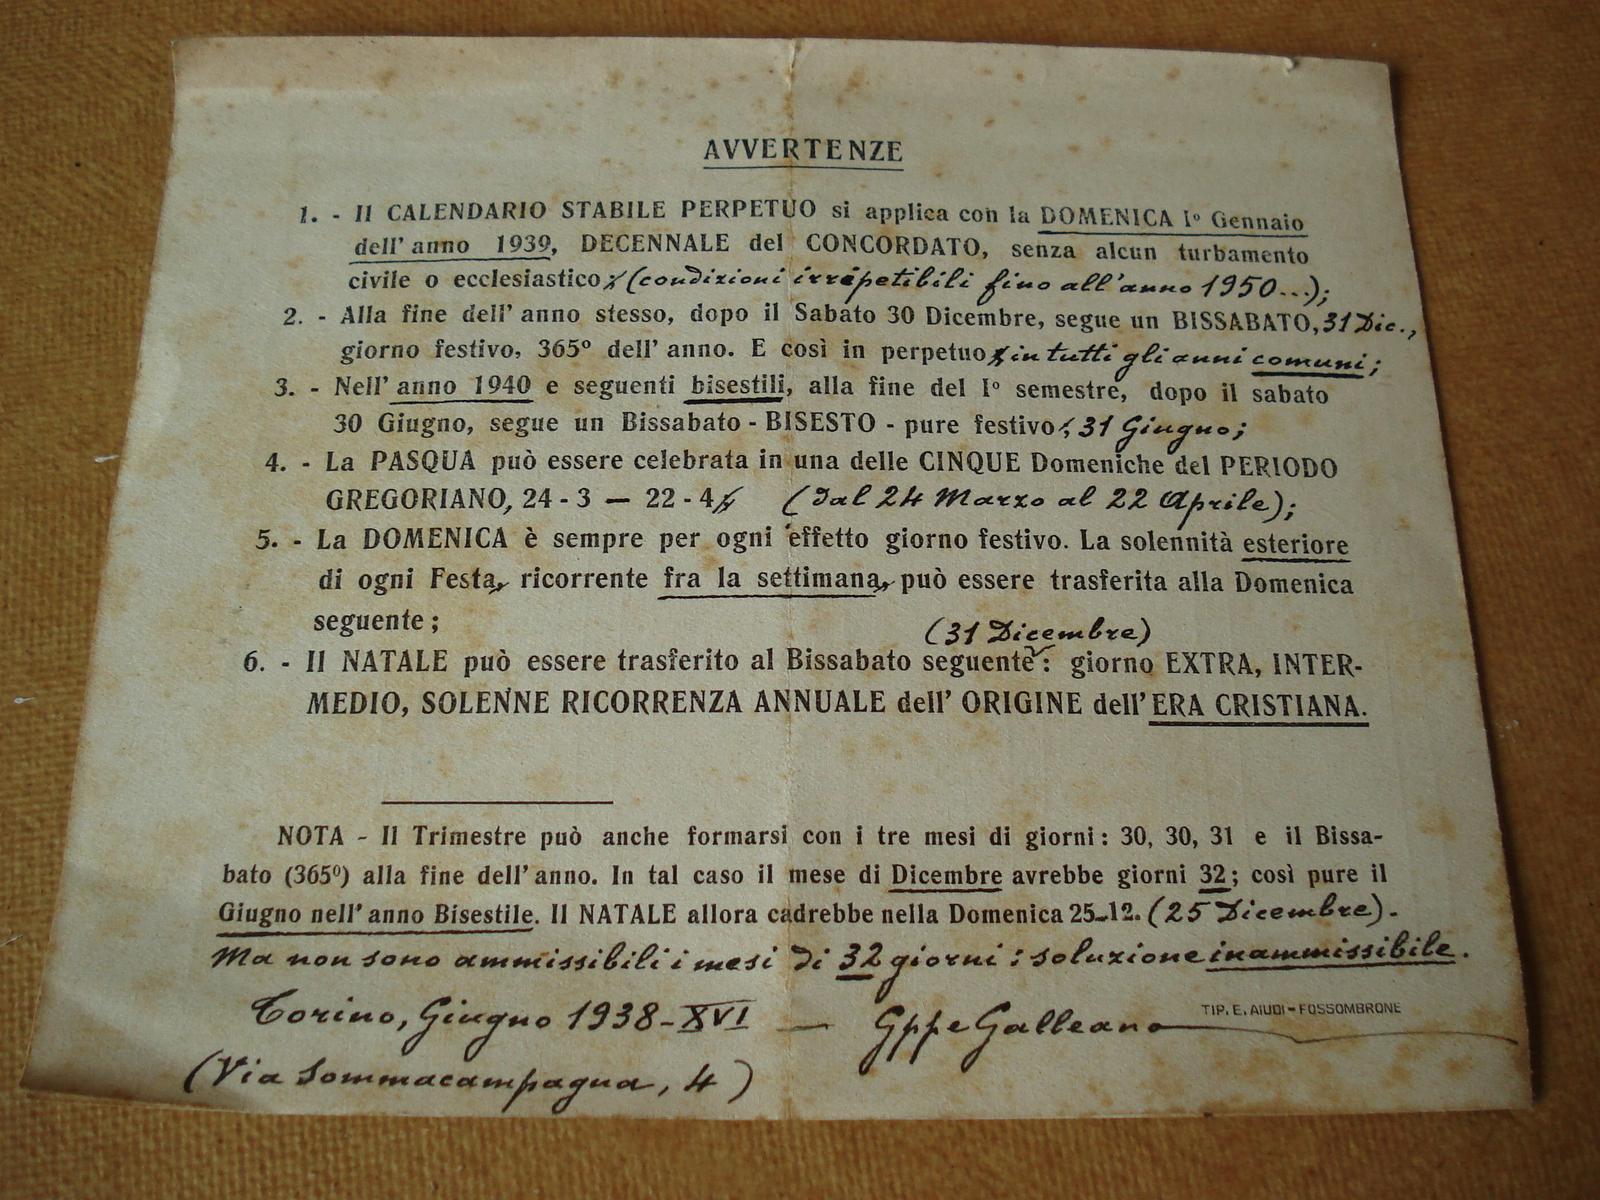 AVVERTENZE
1. - Il CALENDARIO STABILE PERPETUO si applica con la DOMENICA Iº Gennaio
dell' anno 1939, DECENNALE del CONCORDATO, senza alcun turbamento
civile o ecclesiastico; (condizioni irrepetibili fino all'anno 1950...);
2. - Alla fine dell' anno stesso, dopo il Sabato 30 Dicembre, segue un BISSABATO, 31 Dic.,
giorno festivo, 365º dell' anno. E così in perpetuo in tutti gli anni comuni;
3. - Nell' anno 1940 e seguenti bisestili, alla fine del Iº semestre, dopo il sabato
30 Giugno, segue un Bissabato - BISESTO - pure festivo, 31 Giugno;
4. - La PASQUA può essere celebrata in una delle CINQUE Domeniche del PERIODO
GREGORIANO, 24 - 3 — 22 - 4 (dal 24 Marzo al 22 Aprile);
5. - La DOMENICA è sempre per ogni effetto giorno festivo. La solennità esteriore
di ogni Festa, ricorrente fra la settimana, può essere trasferita alla Domenica
seguente ;
(31 Dicembre)
6. - Il NATALE può essere trasferito al Bissabato seguente : giorno EXTRA, INTER-
MEDIO, SOLENNE RICORRENZA ANNUALE dell' ORIGINE dell' ERA CRISTIANA.
NOTA - Il Trimestre può anche formarsi con i tre mesi di giorni : 30, 30, 31 e il Bissa-
bato (365º) alla fine dell' anno. In tal caso il mese di Dicembre avrebbe giorni 32 ; così pure il
Giugno nell' anno Bisestile. Il NATALE allora cadrebbe nella Domenica 25-12. (25 Dicembre).
Ma non sono ammissibili i mesi di 32 giorni : soluzione inammissibile.
Torino, Giugno 1938 - XVI — Gppe Galleano
TIP. E. AIUDI - FOSSOMBRONE
(Via Sommacampagna, 4)